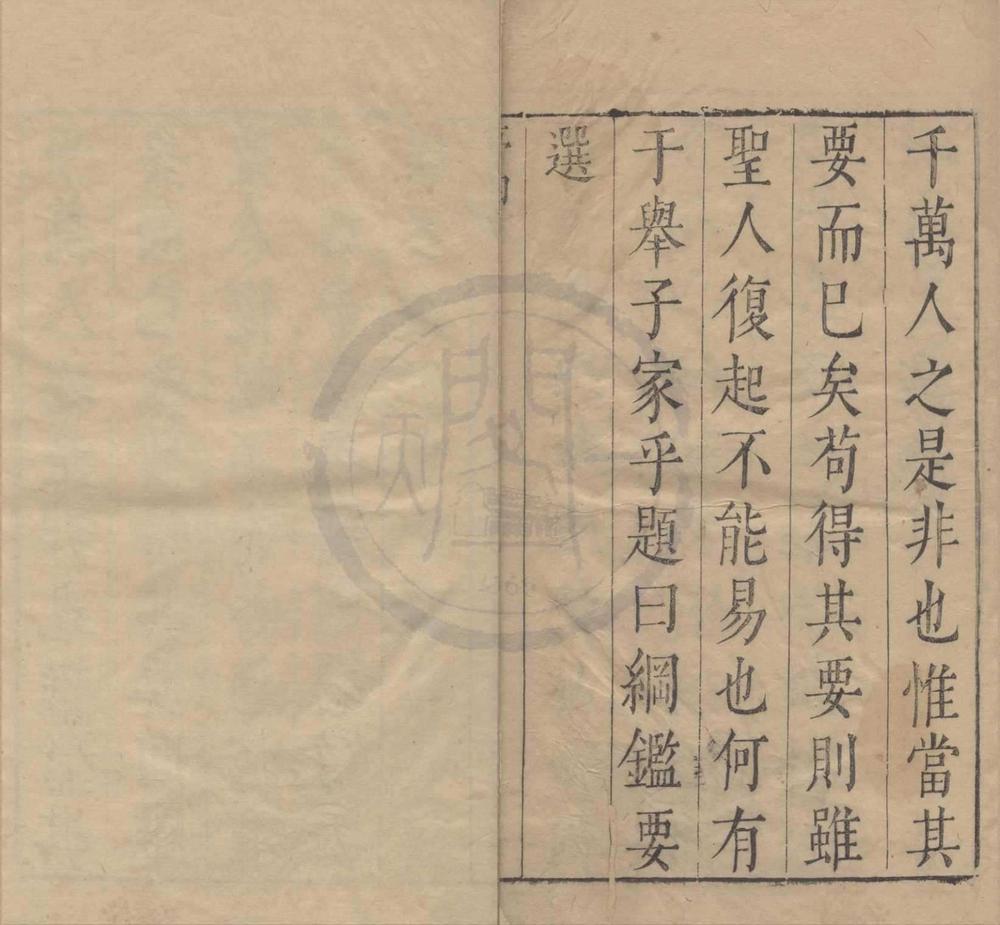 千萬人之是非也惟當其
要而巳矣茍得其要則雖
聖人復起不能易也何有
于舉子家乎題曰綱鑑要
選